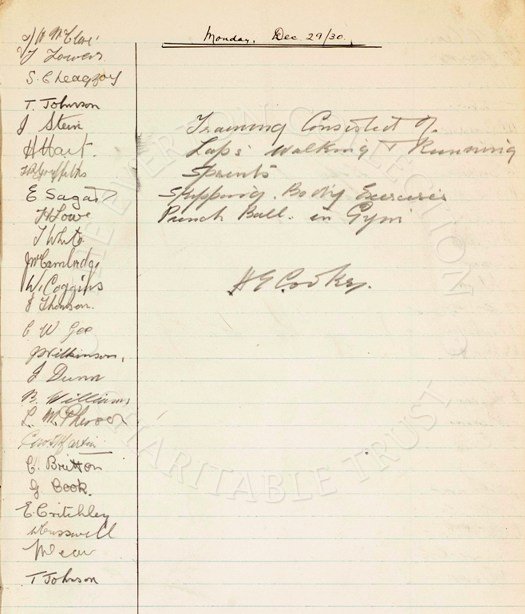 Monday. Dec 29/30.
J W McClure
T Lowers
S. C Leaggoy
T. Johnson
J Stein
H Hart.
H R Griffiths
E Sagar
H Lowe
T White
J McCambridge
W. Coggins
J Thomson.
C W Gee
J Wilkinson.
J Dunn
B. Williams
L. McPherson
Geo H Martin
C. Britton
G Cook.
E Critchley
W Cresswell
T Johnson
Training Consisted of
Laps Walking & Running
Sprints
Skipping. Body Exercises
Punch Ball. in Gym
H E Cooke.
EVERTON COLLECTION
CHARITABLE TRUST